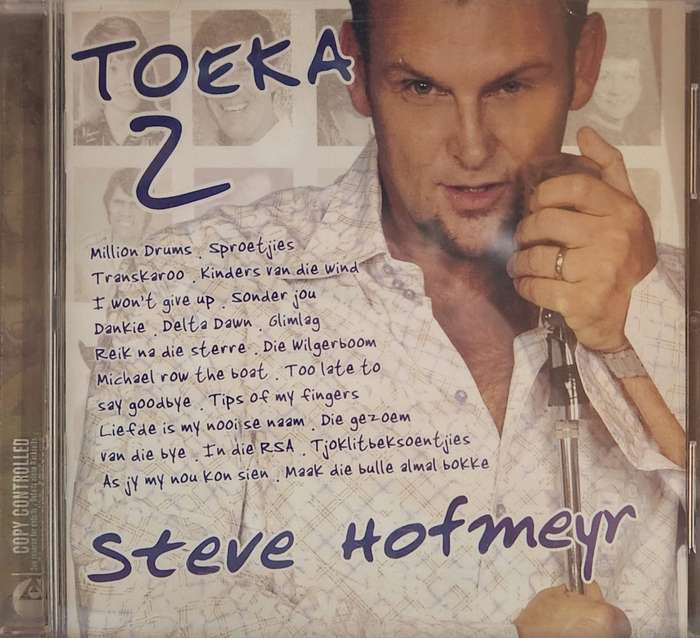 TOEKA
2
Million Drums . Sproetjies
Transkaroo . Kinders van die wind
I won't give up . Sonder jou
Dankie . Delta Dawn . Glimlag
Reik na die sterre . Die Wilgerboom
Michael row the boat . Too late to
say goodbye . Tips of my fingers
Liefde is my nooi se naam . Die gezoem
van die bye . In die RSA . Tjoklitbeksoentjies
As jy my nou kon sien . Maak die bulle almal bokke
Steve Hofmeyr
COPY CONTROLLED